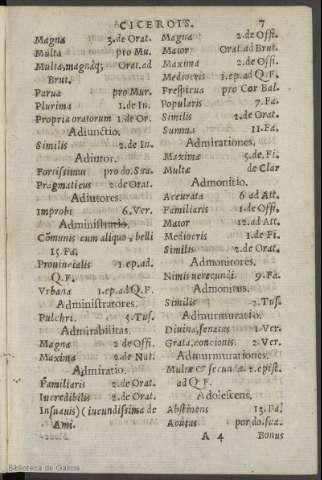 CICEROIS. 7
Magna 3. de Orat.
Multa pro Mu.
Multa, magnáq; Orat. ad
Brut.
Parua pro Mur.
Plurima 1. de In.
Propria oratorum 1. de Or.
Adiunctio.
Similis 2. de In.
Adiutor.
Fortissimus pro do. sua.
Pragmaticus 2. de Orat.
Adiutores.
Improbi 6. Ver.
Administratio.
Cōmunis cum aliquo, belli
15. Fa.
Prouincialis 1. ep. ad.
Q. F.
Vrbana 1. ep. ad Q. F.
Administratores.
Pulchri. 5. Tus.
Admirabilitas.
Magna 2 de Offi.
Maxima 2. de Nat.
Admiratio.
Familiaris 2. de Orat.
Incredibilis 2. de Orat.
Insuauis) (iucundissima de
Ami.
Magna 2. de Offi.
Maior Orat. ad Brut.
Maxima 2. de Offi.
Mediocris 1. ep. ad Q. F.
Perspicua pro Cor Bal.
Popularis 7. Fa.
Similis 2. de Orat.
Summa 11. Fa.
Admirationes.
Maximæ 5. de. Fi.
Multæ de Clar
Admonitio.
Accurata 6 ad Att.
Familiaris 1. de Offi.
Maior 12. ad Att.
Mediocris 1. de Fi.
Similis 2. de Orat.
Admonitores.
Nimis uerecundi 9. Fa.
Admonitus.
Similis 2. Tus.
Admurmuratio.
Diuina, senatus 1. Ver.
Grata, concionis 2. Ver.
Admurmurationes.
Multæ & secundæ 2. epist.
ad Q. F.
Adolescens.
Abstinens 13. Fa.
Acutus pro do. sua.
A 4 Bonus
Biblioteca de Galicia